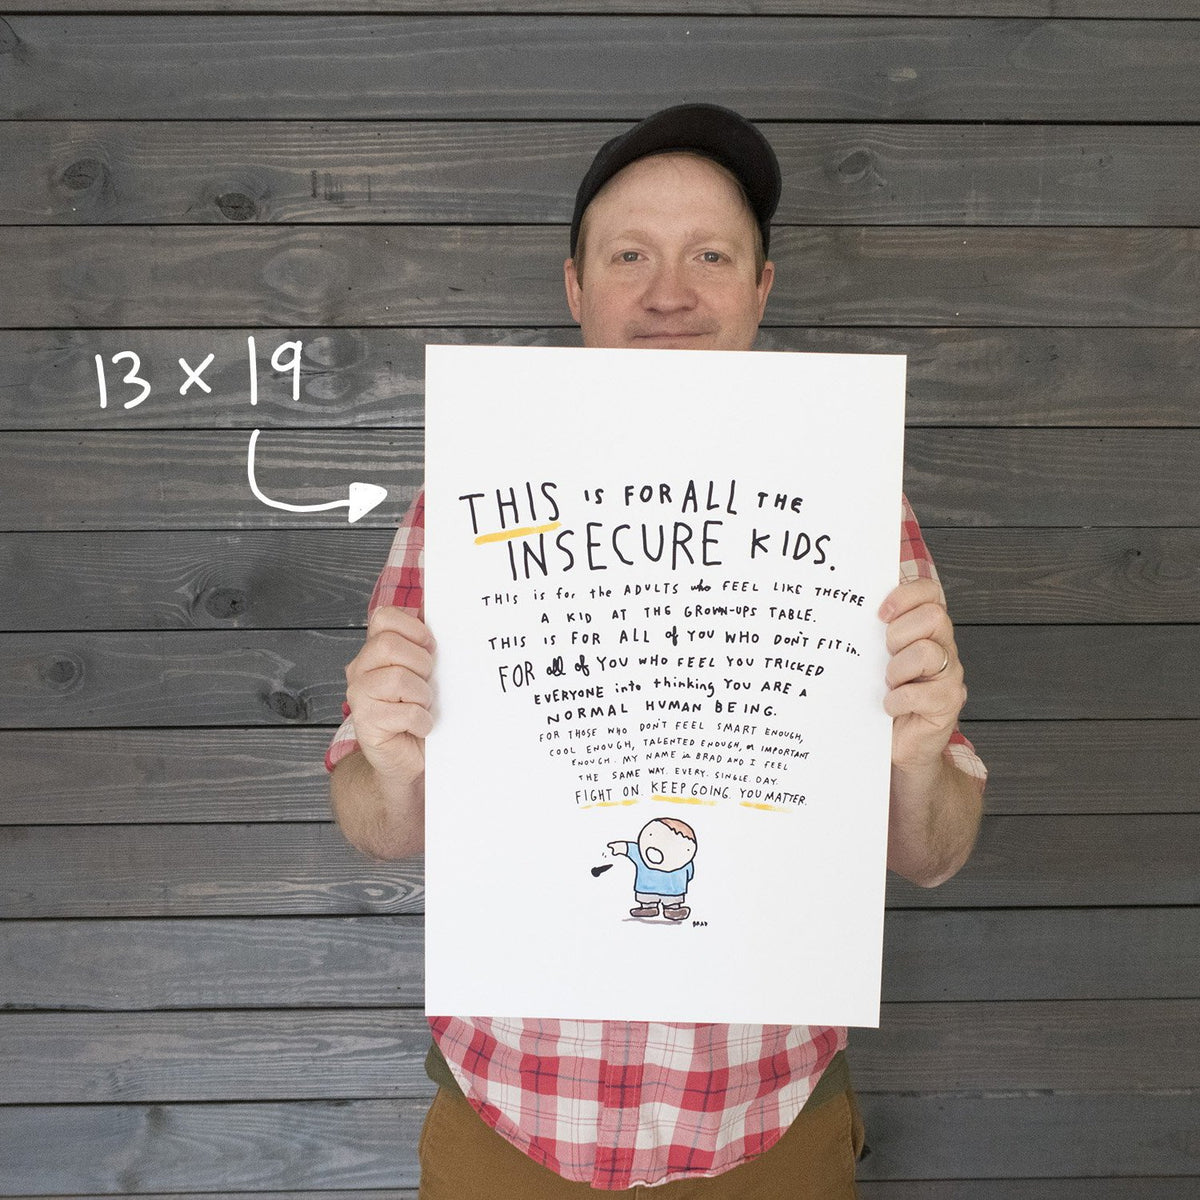 13 x 19
THIS IS FOR ALL THE
INSECURE KIDS.
THIS is for the ADULTS who FEEL LIKE THEY'RE
A KID AT THE GROWN-UPS TABLE.
THIS IS FOR ALL of YOU WHO DON'T FIT in.
FOR all of YOU WHO FEEL YOU TRICKED
EVERYONE into thinking YOU ARE A
NORMAL HUMAN BEING.
FOR THOSE WHO DON'T FEEL SMART ENOUGH,
COOL ENOUGH, TALENTED ENOUGH, or IMPORTANT
ENOUGH. MY NAME is BRAD AND I FEEL
THE SAME WAY. EVERY. SINGLE. DAY.
FIGHT ON. KEEP GOING. YOU MATTER.
BRAD